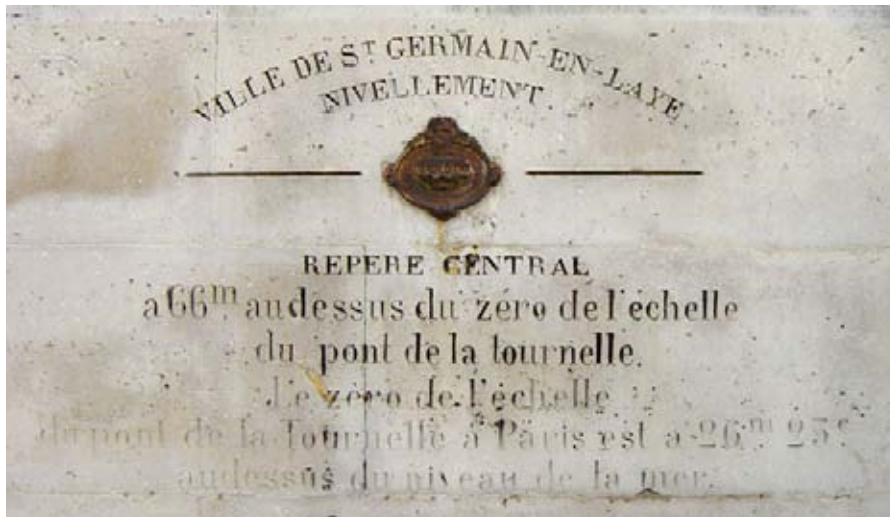 VILLE DE ST GERMAIN-EN-LAYE
NIVELLEMENT
REPERE CENTRAL
à 66m au dessus du zéro de l'échelle
du pont de la tournelle.
Le zéro de l'échelle
du pont de la Tournelle à Paris est à 26m 25c
au dessus du niveau de la mer.